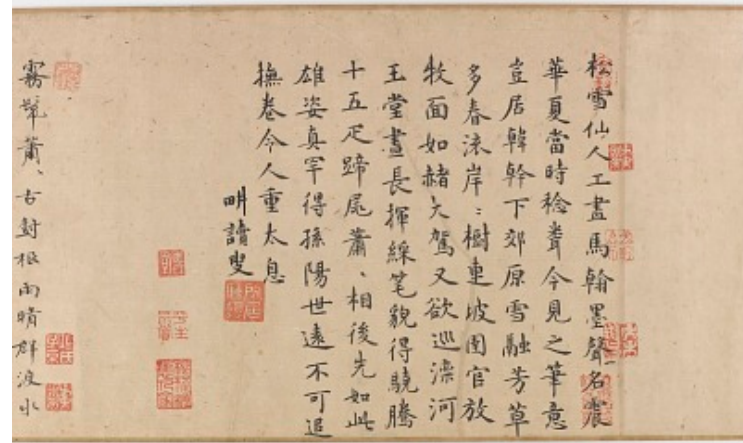 松雪仙人工畫馬翰墨聲名震
華夏當時稔今見之筆意
豈居韓幹下郊原雪融芳草
多春流岸〻樹連坡圉官放
牧面如赭大駕又欲巡灤河
玉堂晝長揮綵笔貌得驍騰
十五疋蹄尾蕭〻相後先如此
雄姿真罕得孫陽世遠不可追
撫卷令人重太息
畊讀叟
霧蕭〻古根雨晴群水